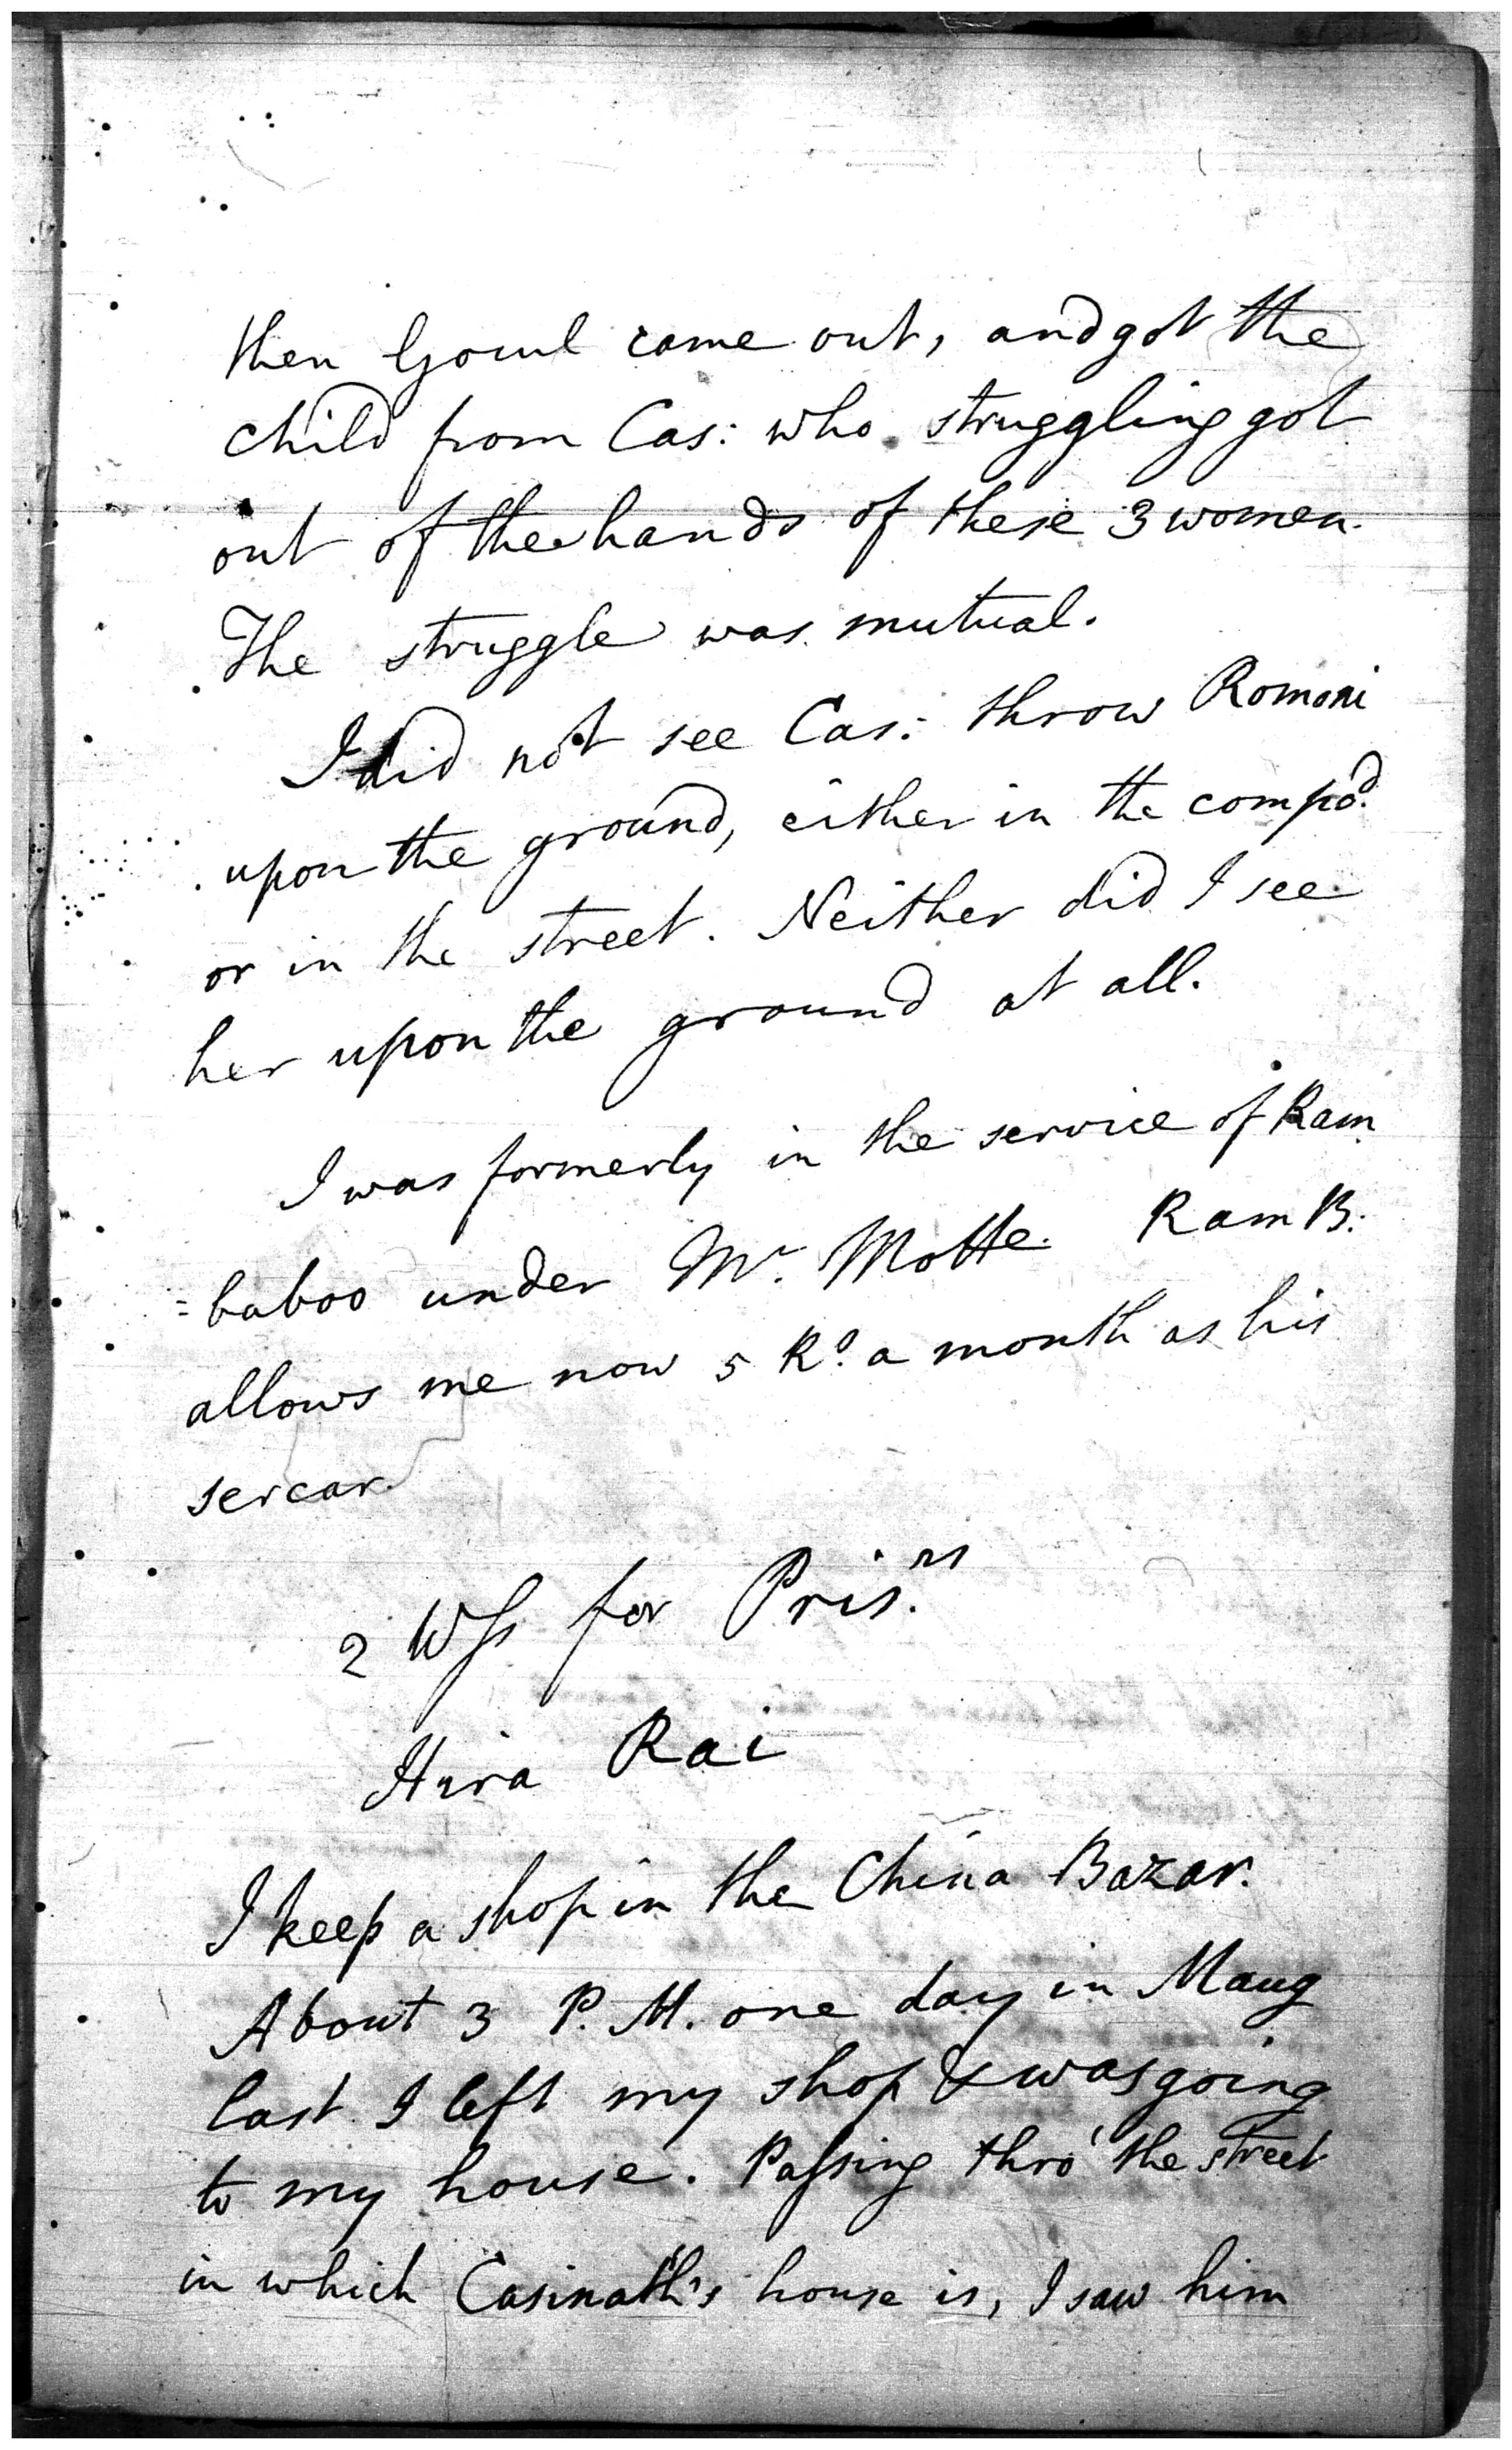 then Gowl came out, and got the
child from Cas: who struggling got
out of the hands of these 3 women.
The struggle was mutual.
I did not see Cas: throw Romoni
upon the ground, either in the compd.
or in the street. Neither did I see
her upon the ground at all.
I was formerly in the service of Ram
=baboo under Mr. Motte. Ram B:
allows me now 5 Rs. a month as his
sercar.
2 Wss for Prisrs.
Hira Rai
I keep a shop in the China Bazar.
About 3 P.M. one day in Maug
last I left my shop & was going
to my house. Passing thro' the street
in which Casinath's house is, I saw him